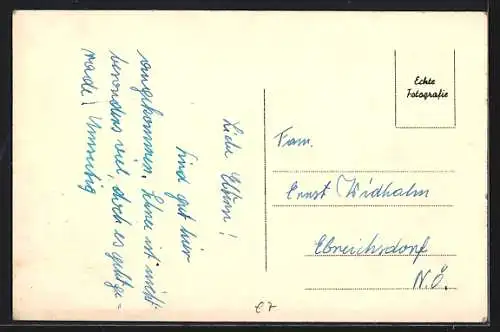 Liebe Eltern!
Sind gut hier
angekommen. Schnee ist nicht
besonders viel, doch es geht ge=
rade!
Echte
Fotografie
Fam.
Ernst Widhalm
Ebreichsdorf
N.Ö.